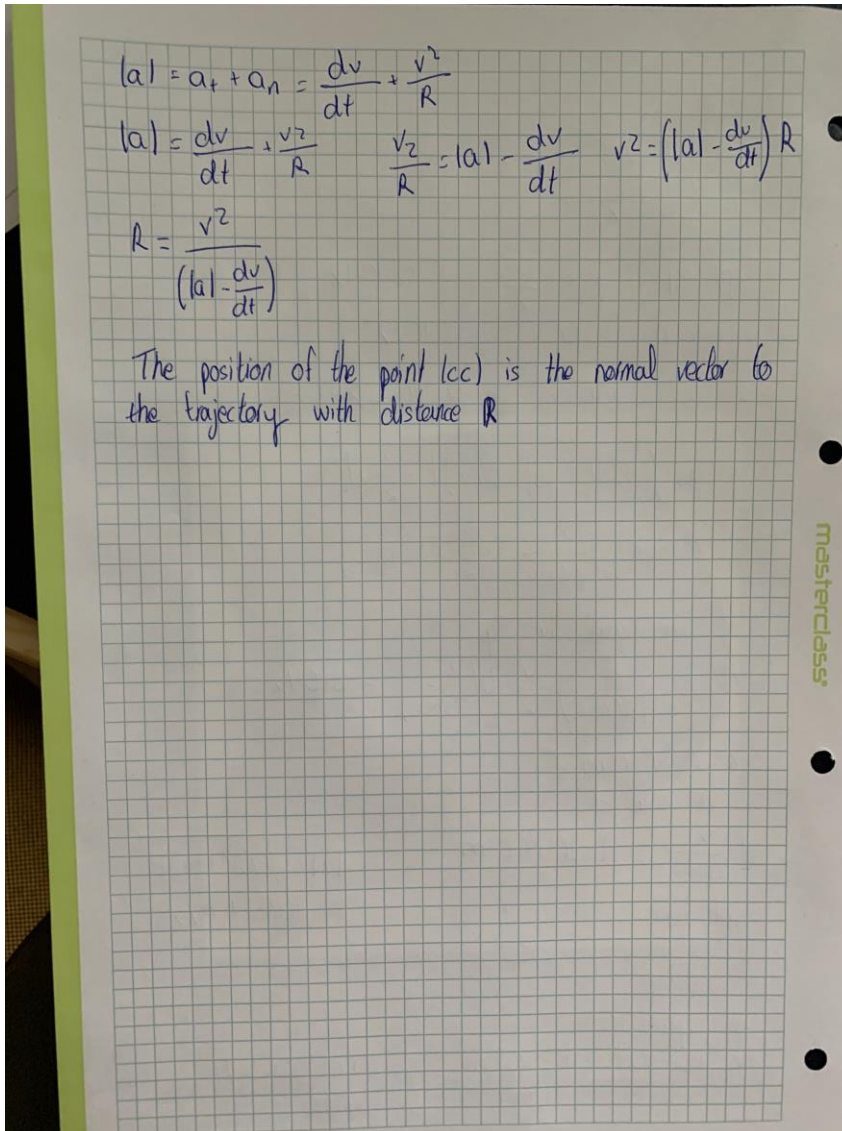 |a| = a_t + a_n = dv/dt + v²/R
|a| = dv/dt + v2/R   v2/R = |a| - dv/dt   v² = (|a| - dv/dt) R
R = v²/(|a| - dv/dt)
The position of the point (cc) is the normal vector to
the trajectory with distance R
masterclass